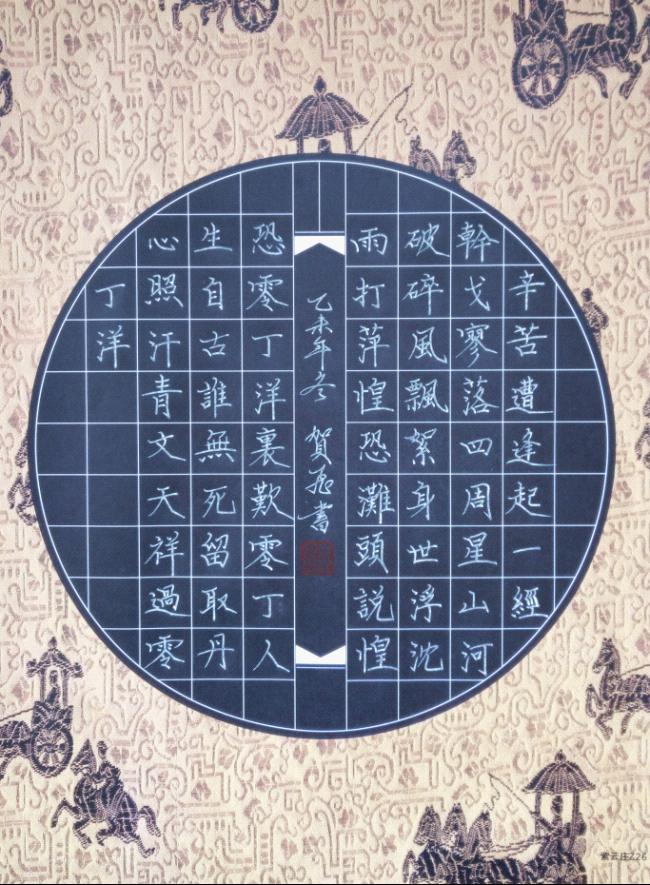 辛苦遭逢起一經
幹戈廖落四周星山河
破碎風飄絮身世浮沈
雨打萍惶恐灘頭説惶
恐零丁洋裏歎零丁人
生自古誰無死留取丹
心照汗青文天祥過零
丁洋
乙未年冬 賀書
紫云庄Z26